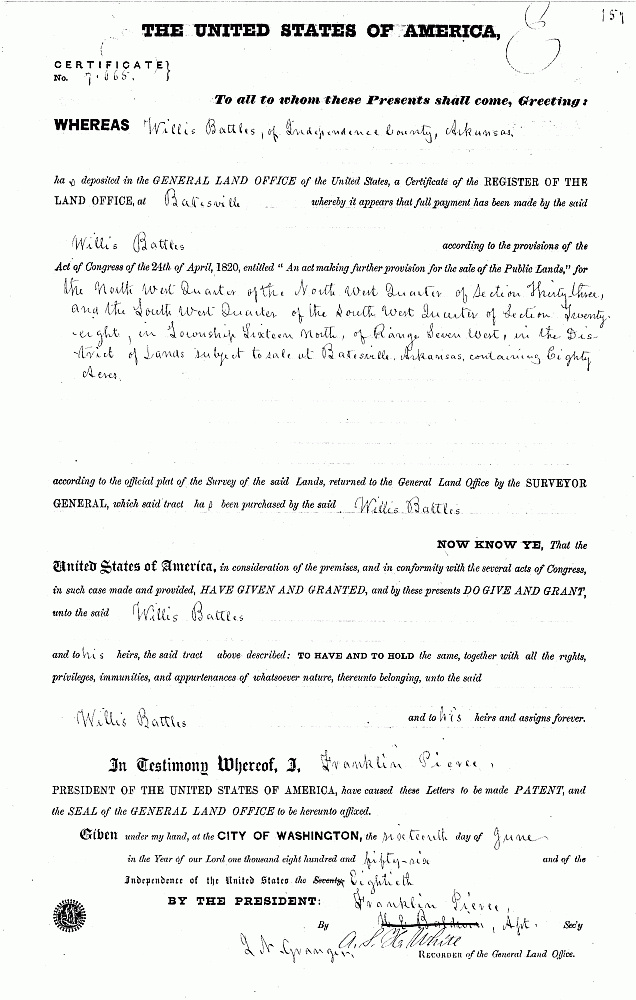 157
THE UNITED STATES OF AMERICA,
CERTIFICATE
No.
To all to whom these Presents shall come, Greeting:
WHEREAS Willis Battles, of Independence County, Arkansas.
ha s deposited in the GENERAL LAND OFFICE of the United States, a Certificate of the REGISTER OF THE
LAND OFFICE, at Batesville whereby it appears that full payment has been made by the said
Willis Battles according to the provisions of the
Act of Congress of the 24th of April, 1820, entitled "An act making further provision for the sale of the Public Lands," for
the North West Quarter of the North West Quarter of Section Thirty three,
and the South West Quarter of the South West Quarter of Section Twenty-
-eight, in Township Sixteen North, of Range Seven West, in the Dis-
-trict of Lands subject to sale at Batesville. Arkansas, containing Eighty
Acres.
according to the official plat of the Survey of the said Lands, returned to the General Land Office by the SURVEYOR
GENERAL, which said tract ha s been purchased by the said Willis Battles
NOW KNOW YE, That the
United States of America, in consideration of the premises, and in conformity with the several acts of Congress,
in such case made and provided, HAVE GIVEN AND GRANTED, and by these presents DO GIVE AND GRANT,
unto the said Willis Battles
and to his heirs, the said tract above described: TO HAVE AND TO HOLD the same, together with all the rights,
privileges, immunities, and appurtenances of whatsoever nature, thereunto belonging, unto the said
Willis Battles and to his heirs and assigns forever.
In Testimony Whereof, I, Franklin Pierce,
PRESIDENT OF THE UNITED STATES OF AMERICA, have caused these Letters to be made PATENT, and
the SEAL of the GENERAL LAND OFFICE to be hereunto affixed.
Given under my hand, at the CITY OF WASHINGTON, the sixteenth day of June
in the Year of our Lord one thousand eight hundred and fifty-six and of the
Independence of the United States the Seventy Eightieth
BY THE PRESIDENT: Franklin Pierce,
By Sec'y
J. N. Granger,
RECORDER of the General Land Office.